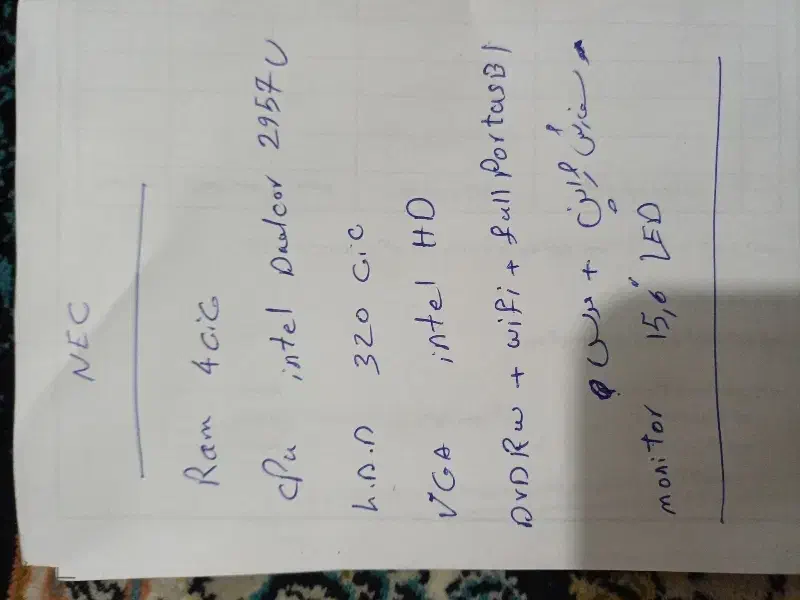 NEC
Ram 4GiG
CPu intel Dualcor 2957U
H.D.D 320 GiG
VGA intel HD
DVDRw + wiFi + full Port USB
موس +
monitor 15,6" LED